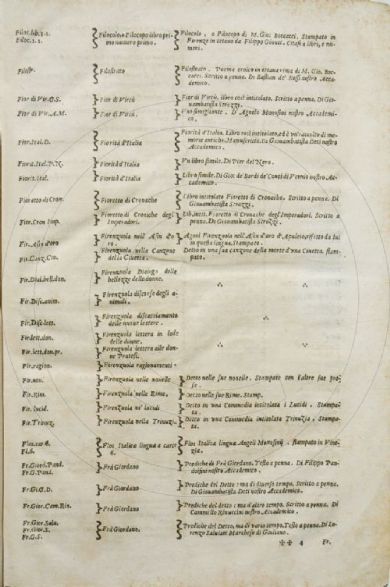 Filoc.lib.1.1. Filocolo, o Filocopo libro pri- Filocolo, o Filocopo di M. Gio. Bocacci, Stampato in
Filoc. 1. 1. mo numero primo. Firenze in ottavo da Filippo Giunti. Citasi a libri, e nu-
meri.
Filostr. Filostrato Filostrato. Poema eroico in ottava rima di M. Gio. Boc-
cacci. Scritto a penna. Di Bastian de' Rossi nostro Acca-
demico.
Fior di Virt. Fior di Virtù. Fior di Virtù, libro così intitolato. Scritto a penna. Di Gio-
vambatista Strozzi.
Fior di Virt. A.M. Fior di Virtù. Un simigliante. D'Agnolo Monosini nostro Accademi-
co.
Fior. Ital. D. Fiorità d'Italia Fiorità d'Italia. Libro così intitolato, ed è un raccolto di me-
morie antiche. Manuscritto. Di Giovambatista Deti nostro
Accademico.
Fiorit. Ital. P.N. Fiorità d'Italia Un libro simile. Di Pier del Nero.
Fiorit. Ital. Fiorità d'Italia Libro simile. Di Gio. de Bardi de' Conti di Vernio nostro Ac-
cademico.
Fioretto di Cron. Fioretto di Cronache Libro intitolato Fioretto di Cronache. Scritto a penna. Di
Giovambatista Strozzi.
Fior. Cron Imp. Fioretto di Croniche degl'
Imperadori. Fioretto di Cronache degl'Imperadori. Scritto a
penna. Di Giovambatista Strozzi.
Fir. Asin d'oro Firenzuola nell'Asin d'o-
ro. Agnol Firenzuola nell'Asin d'oro d'Apuleio
in questa lingua. Stampato.
Fir. Canz. Cio. Firenzuola nella Canzone
della Civetta. Detto in una sua canzone della morte d'una Civetta. Stam-
pato.
Fir. Dial. bell. don. Firenzuola Dialogo delle
bellezze delle donne.
Fir. Disc. anim. Firenzuola discorso degli a-
nimali.
Fir. Disc. lett. Firenzuola discacciamento
delle nuove lettere.
Fir. lett. don. Firenzuola lettera in lode
delle donne.
Fir. lett. don. pr. Firenzuola lettera alle don-
ne Pratesi.
Fir. ragion. Firenzuola ragionamenti
Fir. nov. Firenzuola nelle novelle Detto nelle sue novelle. Stampato con l'altre sue pro-
se.
Fir. rim. Firenzuola nelle Rime. Detto nelle sue Rime. Stamp.
Fir. lucid. Firenzuola ne' lucidi. Detto in una Commedia intitolata i Lucidi. Stampa-
ta.
Fir. Trinuz. Firenzuola nella Trinuzi. Detto in una Commedia intitolata Trinuzia. Stampa-
ta.
Flos. car. 6.
Fl. 6. Flos Italica lingua a carte
6. Flos Italica lingua Angeli Monosinij. Stampato in Vene-
zia.
Fr. Giord. Pand.
Fr. G. Pand. Frà Giordano Prediche di Frà Giordano. Testo a penna. Di Filippo Pan-
dolfini nostro Accademico.
Fr. Gio. D. Frà Giordano. Prediche del Detto: ma di diverso tempo. Scritto a penna.
Di Giovambatista Deti nostro Accademico.
Fr. Gior. Cam. Rin. Frà Giordano. Prediche del detto: ma d'altro tempo. Scritto a penna. Di
Cammillo Rinuccini nostro Accademico.
Fr. Gior. Salu.
Fr. Gior. S.
Fr. G. S. Frà Giordano. Prediche del Detto, ma di vario tempo. Testo a penna. Di Lo-
renzo Salviati Marchese di Giuliano.
✠✠ 4 Fr.